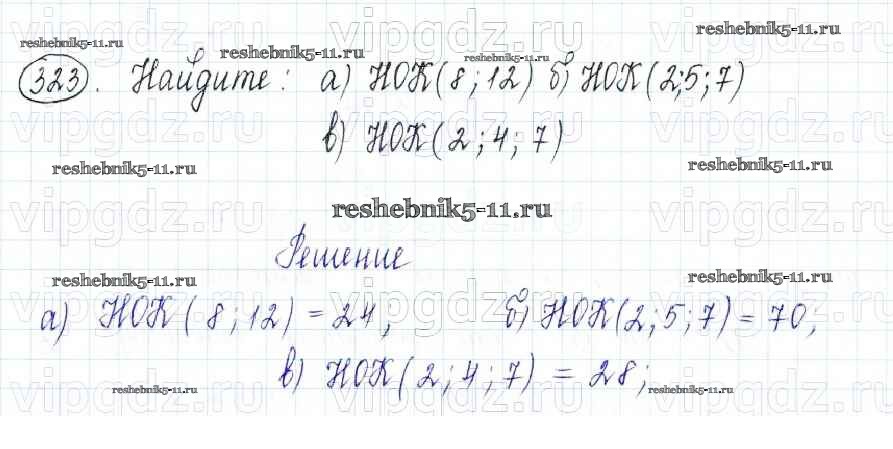 reshebnik5-11.ru reshebnik5-11.ru reshebnik5-11.ru reshebnik5-11.ru
323. Найдите: а) НОК(8;12) б) НОК(2;5;7)
в) НОК(2;4;7)
reshebnik5-11.ru reshebnik5-11.ru
vipgdz.ru vipgdz.ru vipgdz.ru vipgdz.ru
reshebnik5-11.ru
Решение
reshebnik5-11.ru reshebnik5-11.ru
а) НОК(8;12) = 24; б) НОК(2;5;7) = 70;
в) НОК(2;4;7) = 28;
reshebnik5-11.ru reshebnik5-11.ru
vipgdz.ru vipgdz.ru vipgdz.ru vipgdz.ru